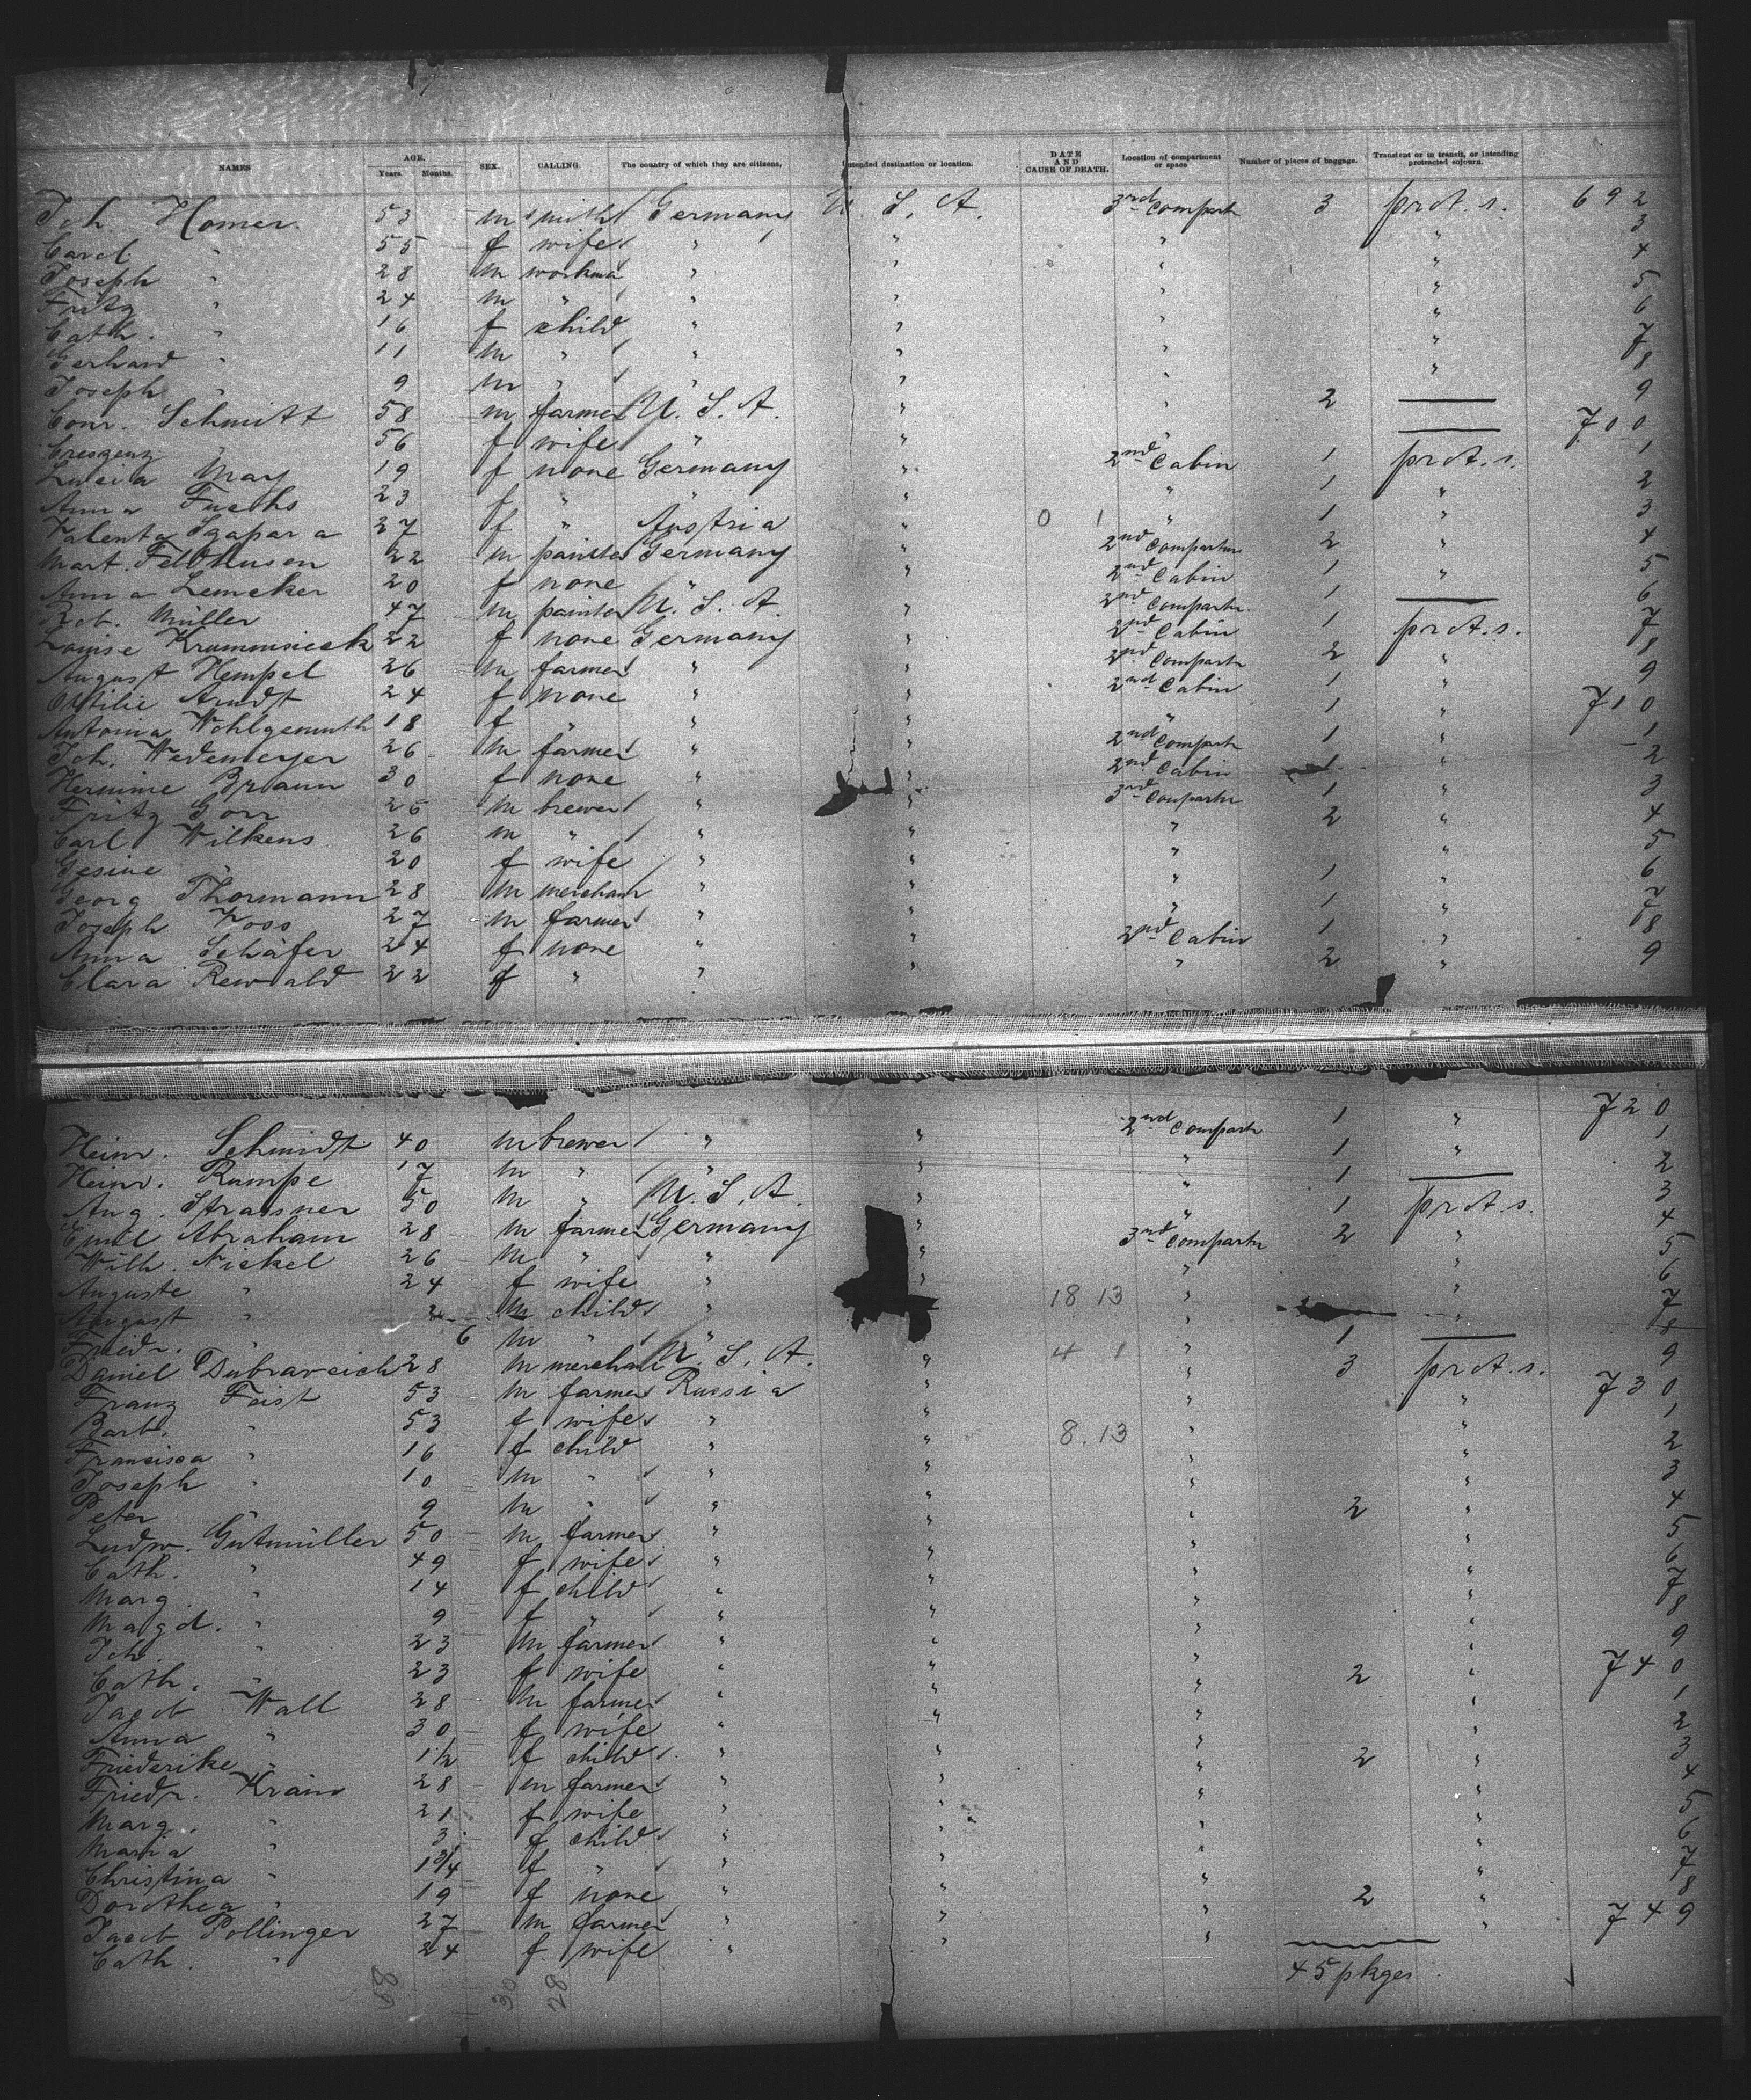 NAMES AGE. Years. Months. SEX. CALLING. The country of which they are citizens, Intended destination or location. DATE AND CAUSE OF DEATH. Location of compartment or space Number of pieces of baggage. Transient or in transit, or intending protracted sojourn.
Joh. Homer. 53 m smith Germany U. S. A. 3rd Compart 3 prot. s. 692
Carol. " 55 f wife " " " " 3
Joseph " 28 m workma " " " " 4
Fritz " 24 m " " " " " 5
Cath. " 16 f child " " " " 6
Gerhard " 11 m " " " " " 7
Joseph " 9 m " " " " " 8
Conr. Schmitt 58 m farmer U. S. A. " " 2 — 9
Crescenz " 56 f wife " " " — 700
Lucia May 19 f none Germany " 2nd Cabin 1 prot. s. 1
Anna Fuchs 23 f " " " " 1 " 2
Valenta Sgapara 27 f " Austria " 0 1 " 1 " 3
Mart. Feldhusen 22 m painter Germany " 2nd Compartm 2 " 4
Anna Lemcker 20 f none " " 2nd Cabin 1 " 5
Rob. Müller 47 m painter U. S. A. " 2nd Compartm 1 — 6
Louise Krummsieck 22 f none Germany " 2nd Cabin 1 prot. s. 7
August Hempel 26 m farmer " " 2nd Compartm 2 " 8
Ottilie Arndt 24 f none " " 2nd Cabin 1 " 9
Antonia Wohlgemuth 18 f " " " " 1 " 710
Joh. Wedemeyer 26 m farmer " " 2nd Compart 1 " 1
Hermine Braun 30 f none " " 2nd Cabin 1 " 2
Fritz Gorr 25 m brewer " " 3rd Compartm 1 " 3
Carl Wilkens 26 m " " " " 2 " 4
Gesine " 20 f wife " " " " 5
Georg Thormann 28 m merchant " " " 1 " 6
Joseph Voss 27 m farmer " " " 1 " 7
Anna Schäfer 24 f none " " 2nd Cabin 1 " 8
Clara Rewald 22 f " " " " 2 " 9
Heinr. Schmidt 40 m brewer " " 2nd Compart 1 " 720
Heinr. Rumpe 17 m " " " " 1 " 1
Aug. Strassner 50 m " U. S. A. " " 1 — 2
Emil Abraham 28 m farmer Germany " " 1 prot. s. 3
Wilh. Nickel 26 m " " " 3rd Compartm 2 " 4
Auguste " 24 f wife " " " " 5
August " 2 m child " 18 13 " " 6
Friedr. " 6 m " " " " 7
Daniel Dubraveich 28 m merchant U. S. A. " 4 1 " 1 — 8
Franz Faist 53 m farmer Russia " " 3 prot. s. 9
Barb. " 53 f wife " " " " 730
Francisca " 16 f child " " 8.13 " " 1
Joseph " 10 m " " " " " 2
Peter " 9 m " " " " " 3
Ludw. Gutmüller 50 m farmer " " " 2 " 4
Cath. " 49 f wife " " " " 5
Marg. " 14 f child " " " " 6
Magd. " 9 f " " " " " 7
Joh. " 23 m farmer " " " " 8
Cath. " 23 f wife " " " " 9
Jacob Wall 28 m farmer " " " 2 " 740
Anna " 30 f wife " " " " 1
Friederike " 1 1/2 f child " " " " 2
Friedr. Kraim 28 m farmer " " " 2 " 3
Marg. " 21 f wife " " " " 4
Maria " 3 f child " " " " 5
Christina " 1 3/4 f " " " " " 6
Dorothea " 19 f none " " " " 7
Jacob Pollinger 27 m farmer " " " 2 " 8
Cath. " 24 f wife " " " " 749
45 pkges
30 28